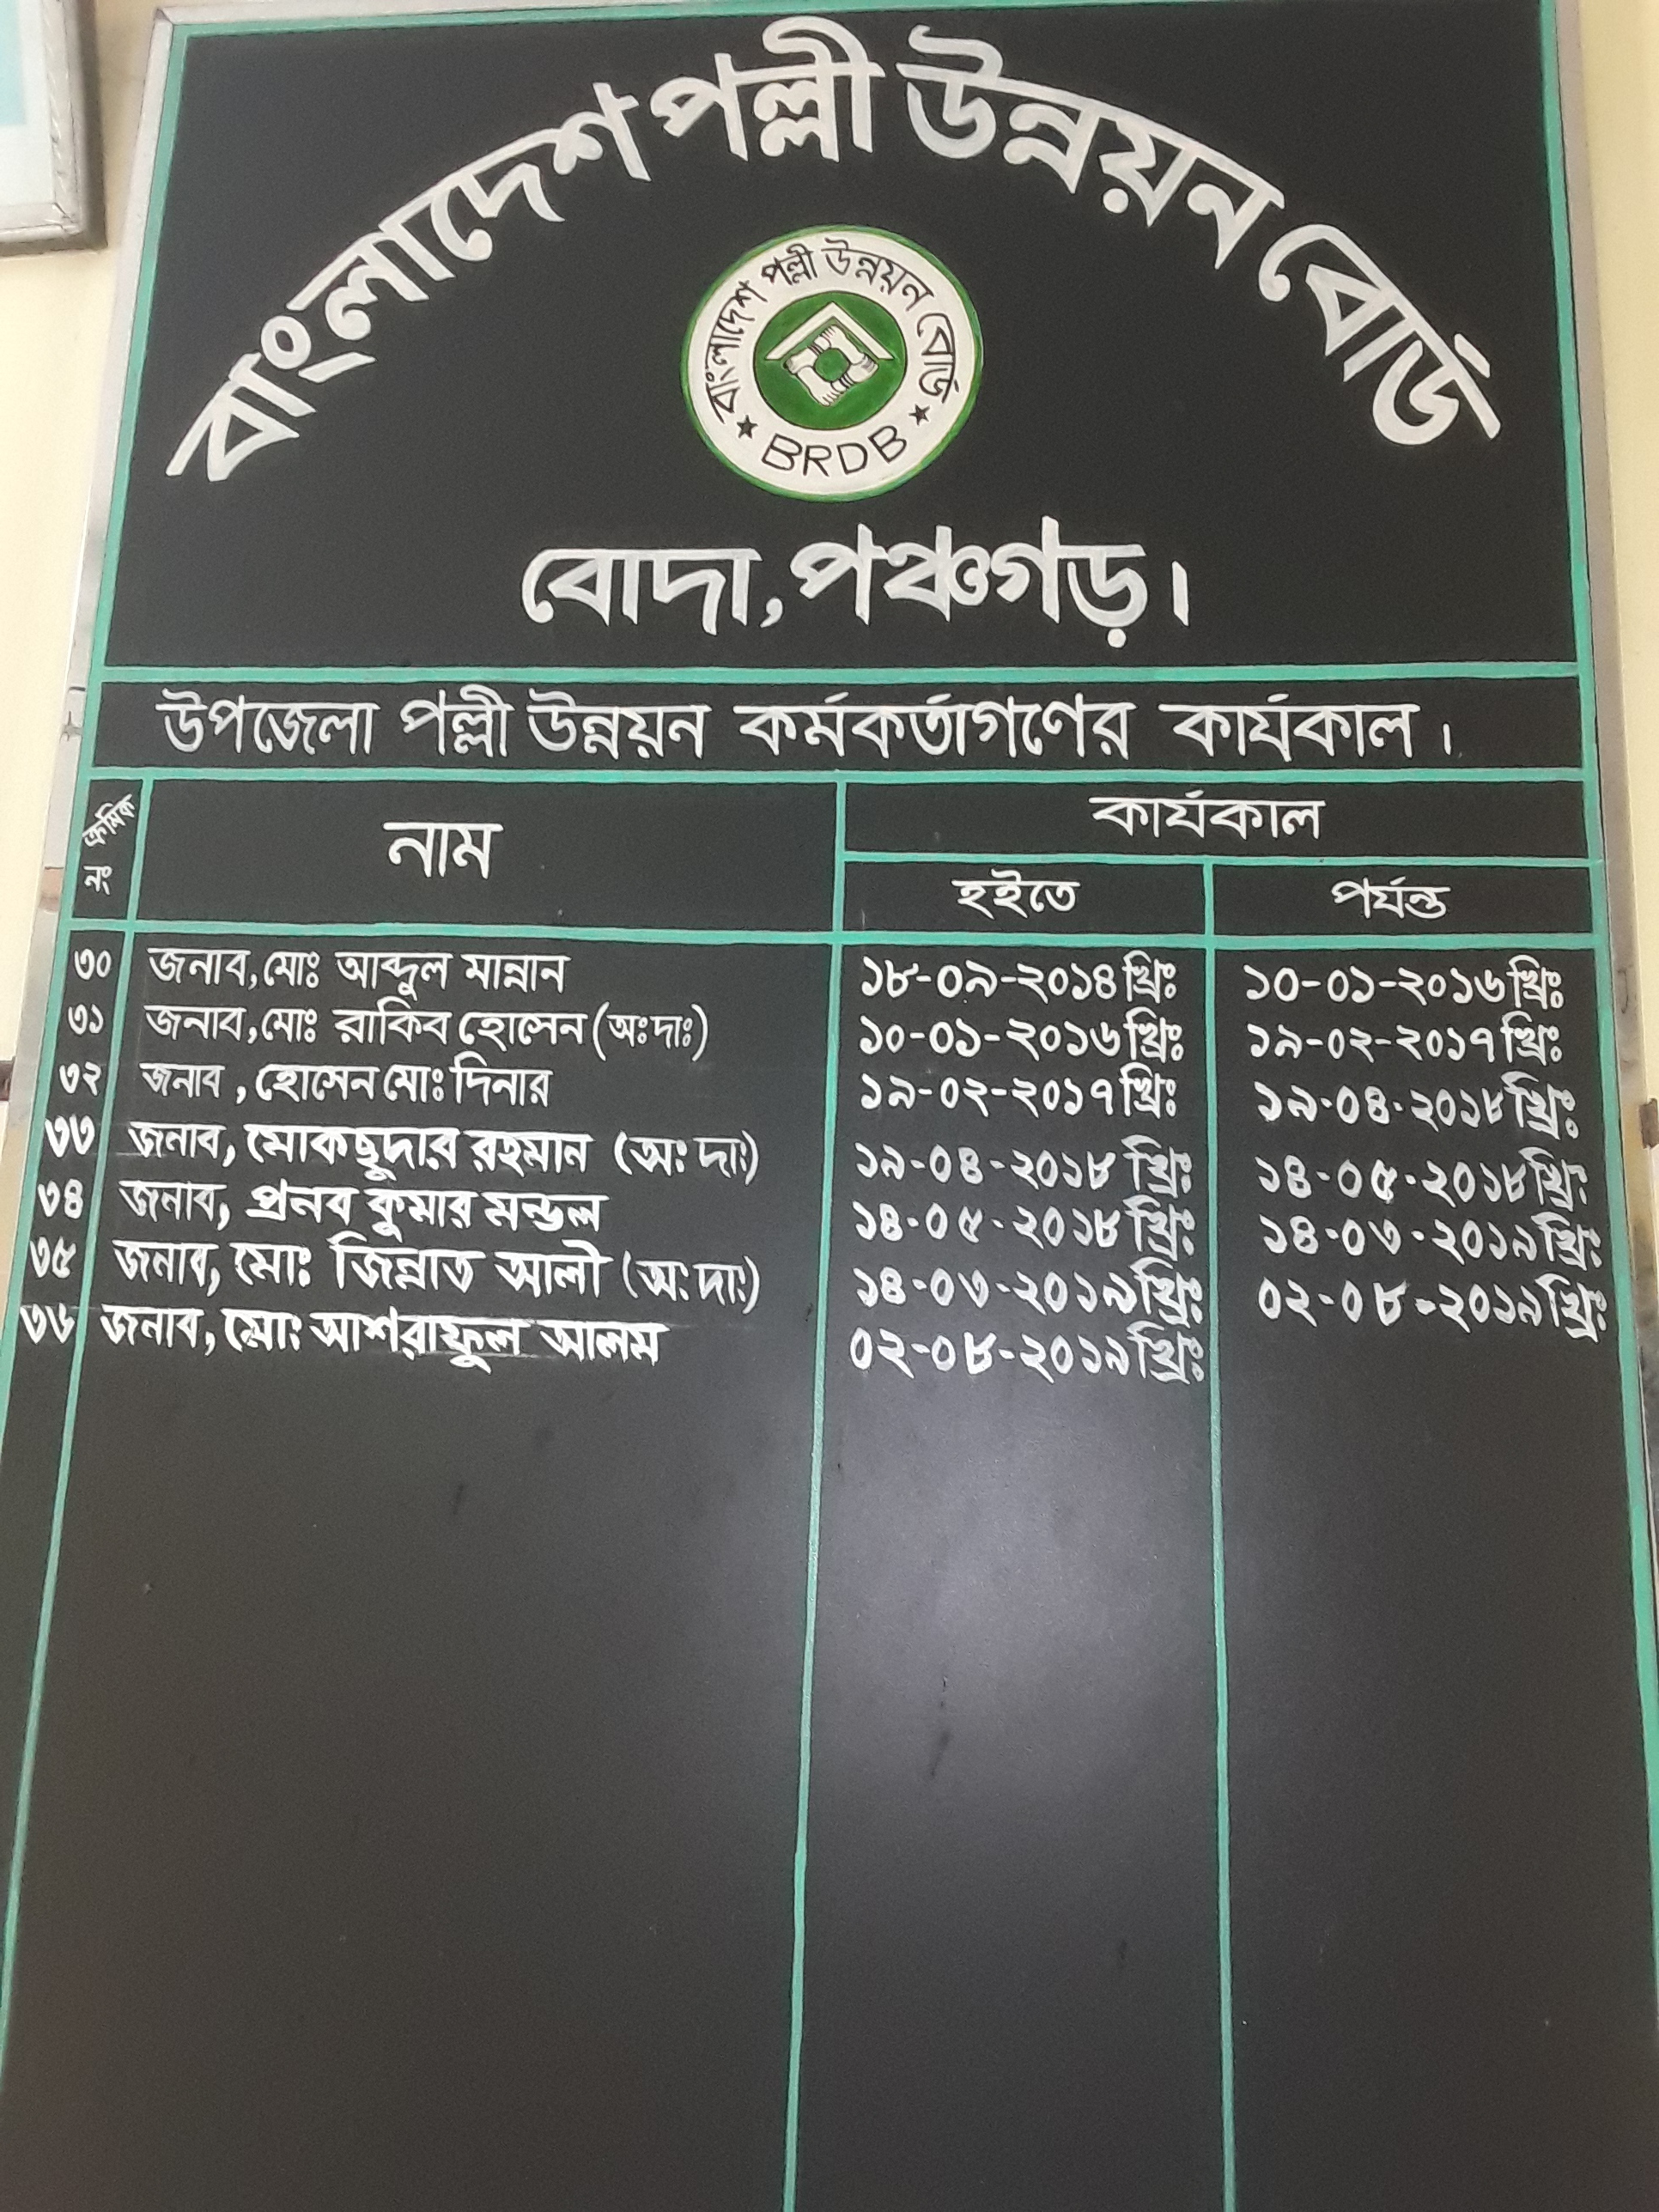 বাংলাদেশ পল্লী উন্নয়ন বোর্ড
বাংলাদেশ পল্লী উন্নয়ন বোর্ড
★ BRDB ★
বোদা, পঞ্চগড়।
উপজেলা পল্লী উন্নয়ন কর্মকর্তাগণের কার্যকাল।
ক্রমিক নং নাম কার্যকাল
হইতে পর্যন্ত
৩০ জনাব, মোঃ আব্দুল মান্নান ১৮-০৯-২০১৪ খ্রিঃ ১০-০১-২০১৬ খ্রিঃ
৩১ জনাব, মোঃ রাকিব হোসেন (অঃ দাঃ) ১০-০১-২০১৬ খ্রিঃ ১৯-০২-২০১৭ খ্রিঃ
৩২ জনাব, হোসেন মোঃ দিনার ১৯-০২-২০১৭ খ্রিঃ ১৯-০৪-২০১৮ খ্রিঃ
৩৩ জনাব, মোকছুদার রহমান (অঃ দাঃ) ১৯-০৪-২০১৮ খ্রিঃ ১৪-০৫-২০১৮ খ্রিঃ
৩৪ জনাব, প্রনব কুমার মন্ডল ১৪-০৫-২০১৮ খ্রিঃ ১৪-০৩-২০১৯ খ্রিঃ
৩৫ জনাব, মোঃ জিন্নাত আলী (অঃ দাঃ) ১৪-০৩-২০১৯ খ্রিঃ ০২-০৮-২০১৯ খ্রিঃ
৩৬ জনাব, মোঃ আশরাফুল আলম ০২-০৮-২০১৯ খ্রিঃ